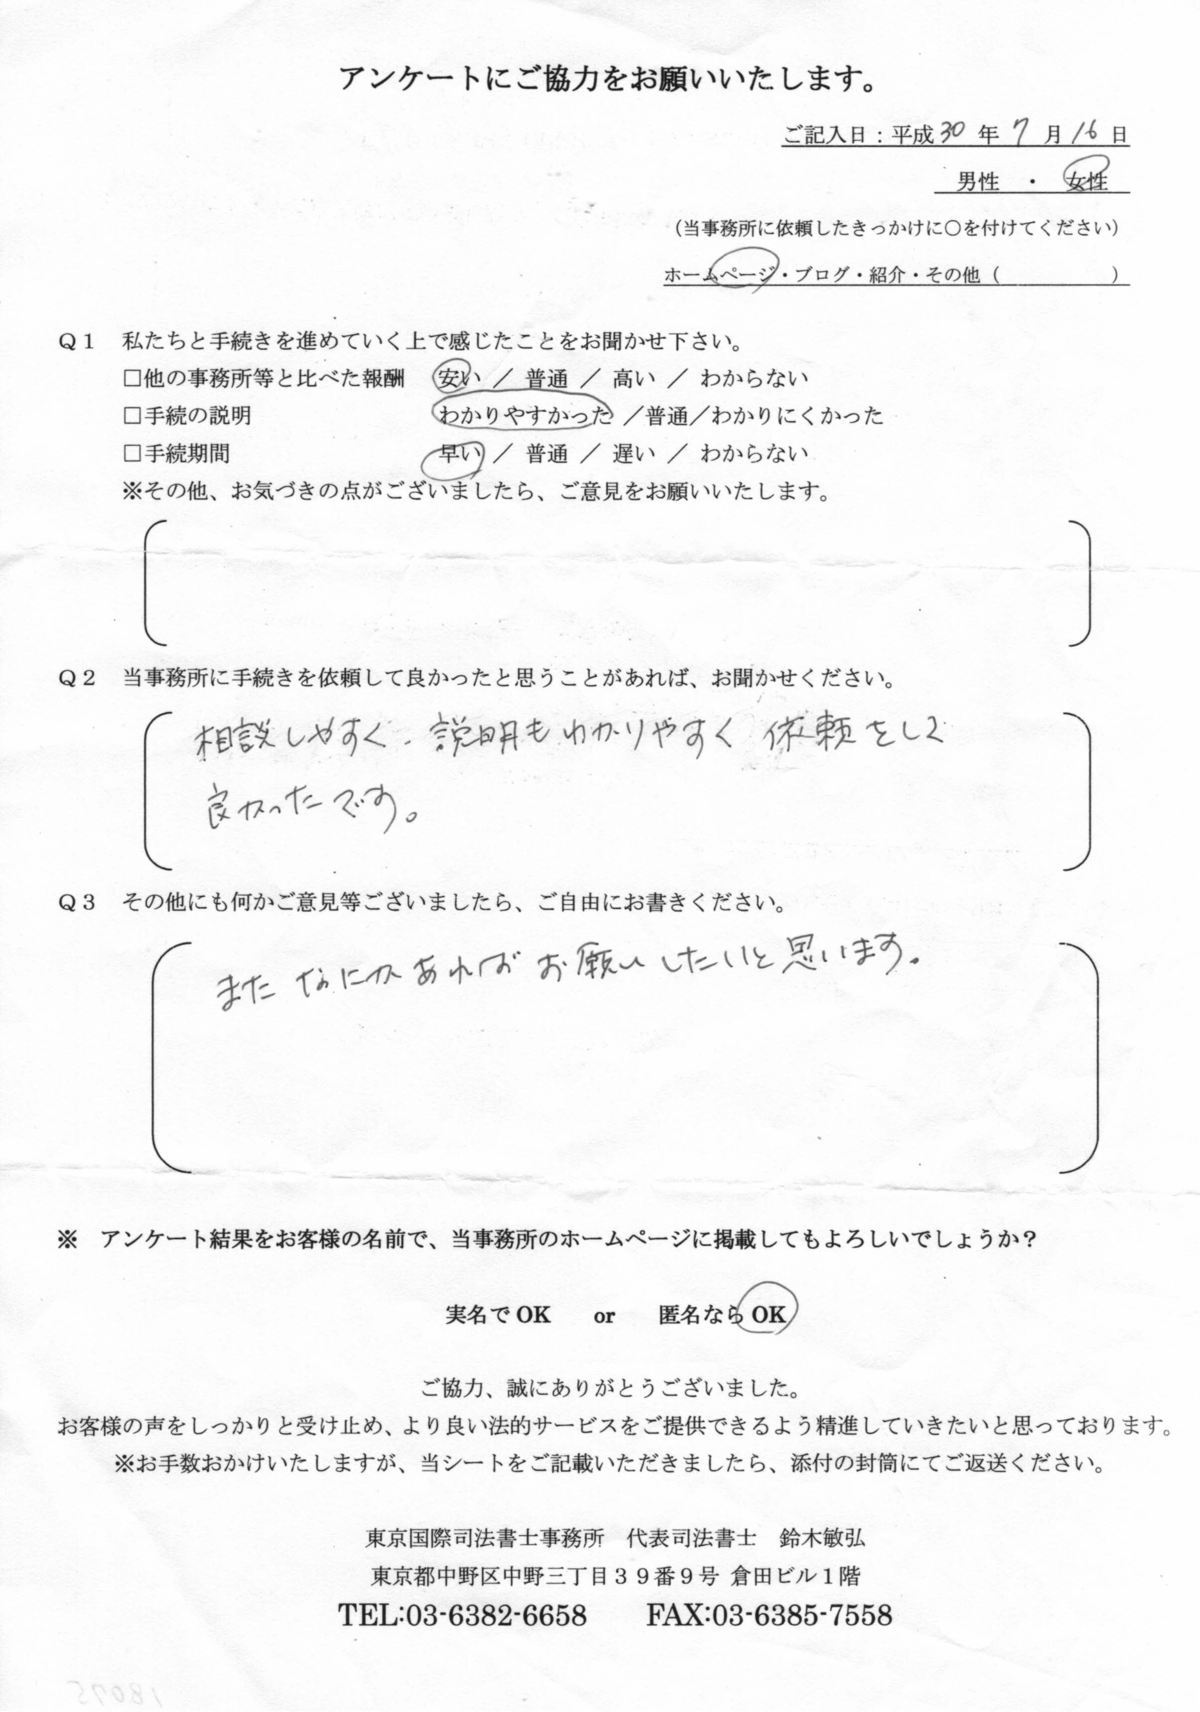 アンケートにご協力をお願いいたします。
ご記入日：平成 30 年 7 月 16 日
男性 ・ 女性
（当事務所に依頼したきっかけに○を付けてください）
ホームページ・ブログ・紹介・その他（　　　　　　）
Ｑ１　私たちと手続きを進めていく上で感じたことをお聞かせ下さい。
□他の事務所等と比べた報酬　安い ／ 普通 ／ 高い ／ わからない
□手続の説明　わかりやすかった ／普通／わかりにくかった
□手続期間　早い ／ 普通 ／ 遅い ／ わからない
※その他、お気づきの点がございましたら、ご意見をお願いいたします。
Ｑ２　当事務所に手続きを依頼して良かったと思うことがあれば、お聞かせください。
相談しやすく、説明もわかりやすく 依頼をして
良かったです。
Ｑ３　その他にも何かご意見等ございましたら、ご自由にお書きください。
また なにかあれば お願いしたいと思います。
※　アンケート結果をお客様の名前で、当事務所のホームページに掲載してもよろしいでしょうか？
実名で OK　　or　　匿名なら OK
ご協力、誠にありがとうございました。
お客様の声をしっかりと受け止め、より良い法的サービスをご提供できるよう精進していきたいと思っております。
※お手数おかけいたしますが、当シートをご記載いただきましたら、添付の封筒にてご返送ください。
東京国際司法書士事務所　代表司法書士　鈴木敏弘
東京都中野区中野三丁目３９番９号 倉田ビル１階
TEL:03-6382-6658　　FAX:03-6385-7558